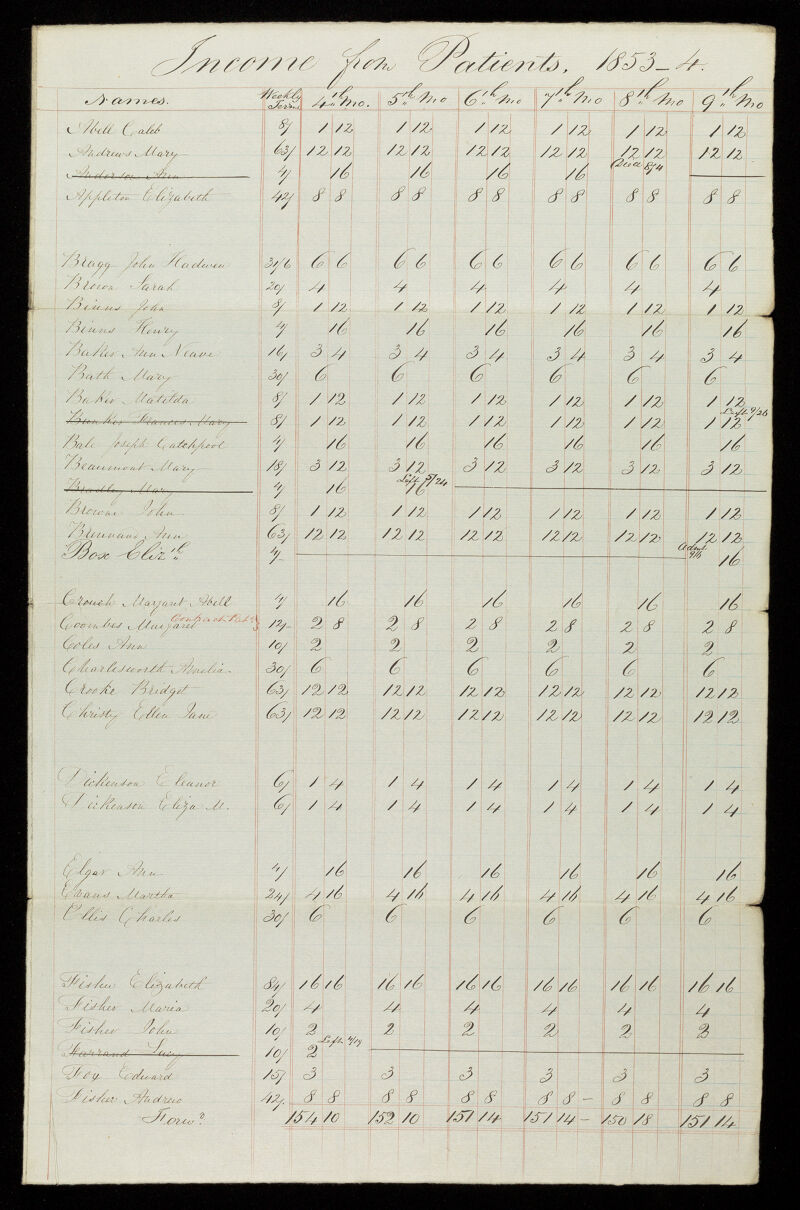 Income from Patients. 1853-4.
Names. Weekly Terms 4th Mo. 5th Mo 6th Mo 7th Mo 8th Mo 9th Mo
Abell Caleb 8/ 1 12 1 12 1 12 1 12 1 12 1 12
Andrews Mary 63/ 12 12 12 12 12 12 12 12 12 12 12 12
Anderson Ann 4/ 16 16 16 16 Died 8/4
Appleton Elizabeth 42/ 8 8 8 8 8 8 8 8 8 8 8 8
Bragg John Hadwen 31/6 6 6 6 6 6 6 6 6 6 6 6 6
Brown Sarah 20/ 4 4 4 4 4 4
Binns John 8/ 1 12 1 12 1 12 1 12 1 12 1 12
Binns Henry 4/ 16 16 16 16 16 16
Baker Ann Neave 16/ 3 4 3 4 3 4 3 4 3 4 3 4
Bath Mary 30/ 6 6 6 6 6 6
Baker Matilda 8/ 1 12 1 12 1 12 1 12 1 12 1 12
Bunker Frances Mary 8/ 1 12 1 12 1 12 1 12 1 12 Left 9/26 1 12
Bale Joseph Catchpool 4/ 16 16 16 16 16 16
Beaumont Mary 18/ 3 12 3 12 3 12 3 12 3 12 3 12
Bradley Mary 4/ 16 Left 5/24 16
Browne John 8/ 1 12 1 12 1 12 1 12 1 12 1 12
Brennand Ann 63/ 12 12 12 12 12 12 12 12 12 12 12 12
Box Elizth 4/ Admd 16
Crouch Margaret Abell 4/ 16 16 16 16 16 16
Coombes Margaret 12/- 2 8 2 8 2 8 2 8 2 8 2 8
Coles Ann 10/ 2 2 2 2 2 2
Charlesworth Amelia 30/ 6 6 6 6 6 6
Crooke Bridget 63/ 12 12 12 12 12 12 12 12 12 12 12 12
Christy Ellen Jane 63/ 12 12 12 12 12 12 12 12 12 12 12 12
Dickenson Eleanor 6/ 1 4 1 4 1 4 1 4 1 4 1 4
Dickenson Eliza M. 6/ 1 4 1 4 1 4 1 4 1 4 1 4
Elgar Ann 4/ 16 16 16 16 16 16
Evans Martha 24/ 4 16 4 16 4 16 4 16 4 16 4 16
Ellis Charles 30/ 6 6 6 6 6 6
Fisher Elizabeth 84/ 16 16 16 16 16 16 16 16 16 16 16 16
Fisher Maria 20/ 4 4 4 4 4 4
Fisher John 10/ 2 2 2 2 2 2
Farrand Lucy 10/ 2 Left 4/19
Fox Edward 15/ 3 3 3 3 3 3
Fisher Andrew 42/. 8 8 8 8 8 8 8 8 - 8 8 8 8
Forwd. 154 10 152 10 151 14 151 14 - 150 18 151 14